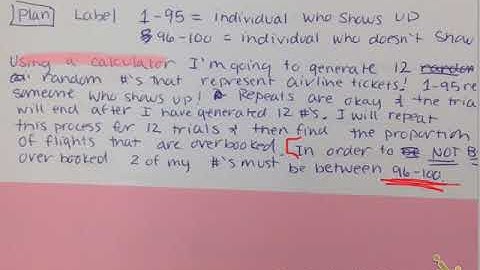 Plan Label 1-95 = individual who shows up
96-100 = individual who doesn't show
Using a calculator I'm going to generate 12
random #'s that represent airline tickets. 1-95 re
someone who shows up! Repeats are okay & the tria
will end after I have generated 12 #'s. I will repeat
this process for 12 trials & then find the proportion
of flights that are overbooked. In order to NOT B
overbooked 2 of my #'s must be between 96-100.